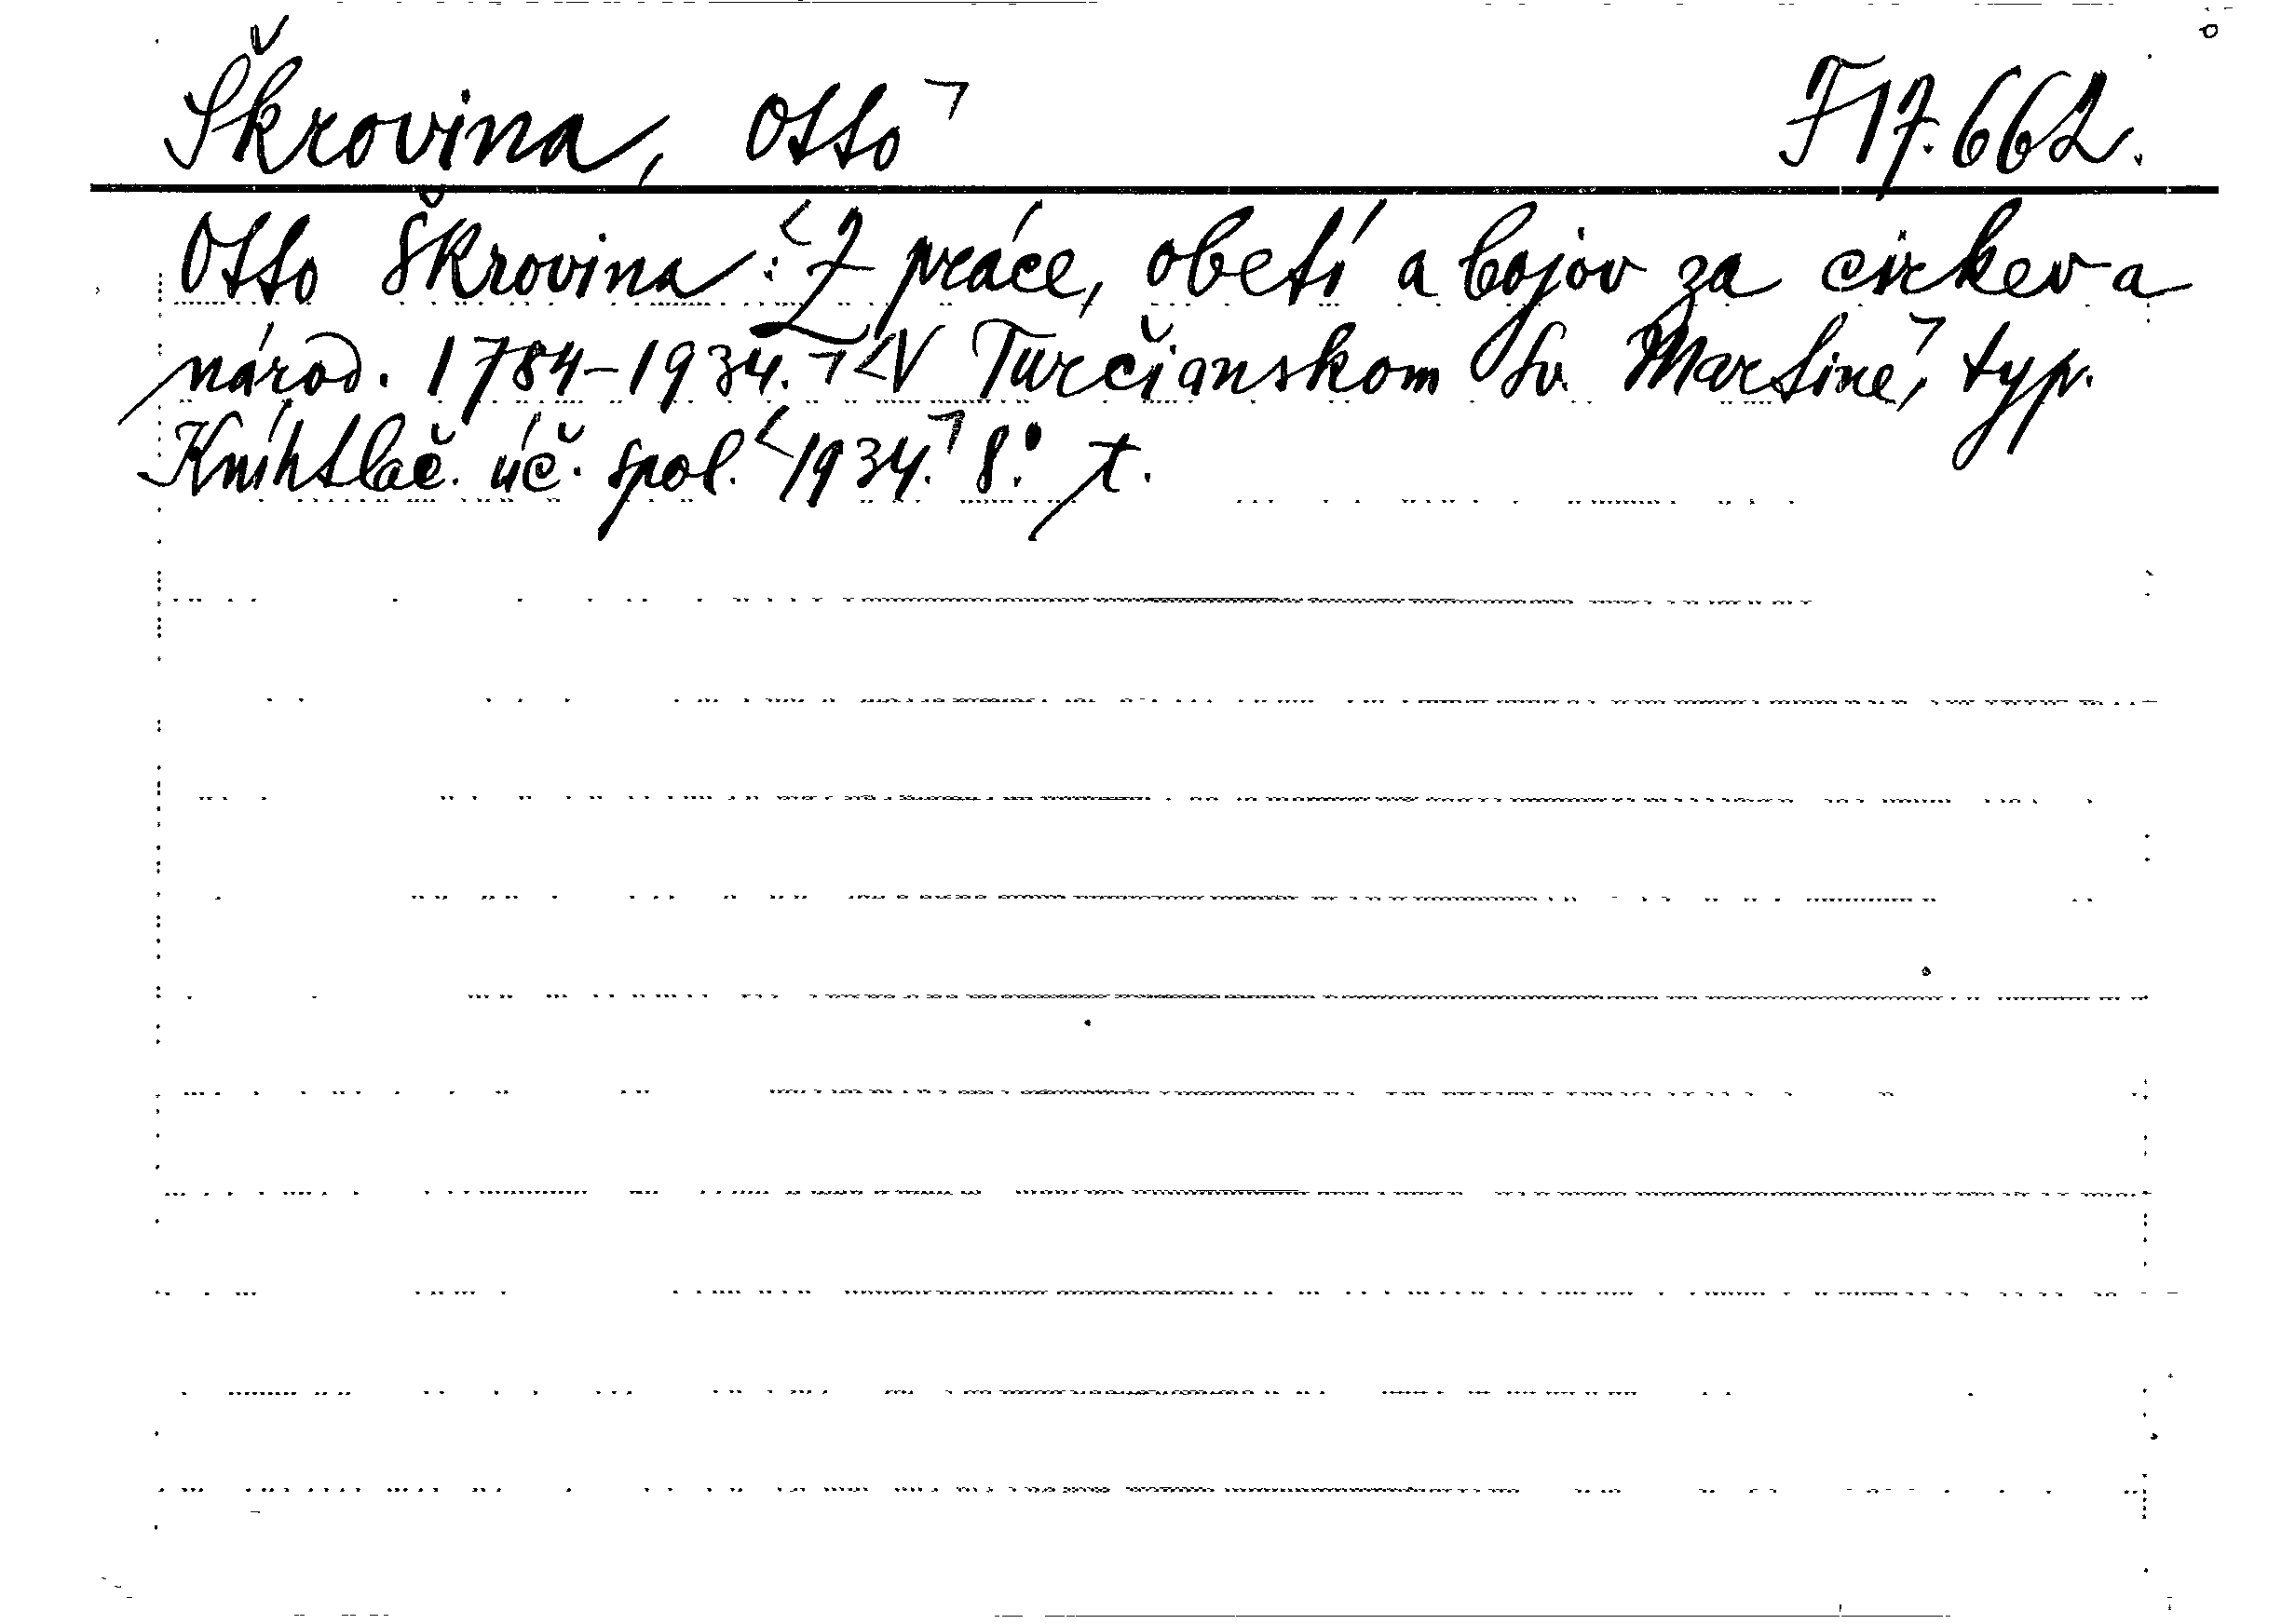 Škrovina, Otto ⌝ F 17.662.
Otto Škrovina: <Z práce, obetí a bojov za cirkev a
národ. 1784-1934.⌝ <V Turčianskom Sv. Martine,⌝ typ.
Kníhtlač. úč. spol. <1934.⌝ 8.° t.